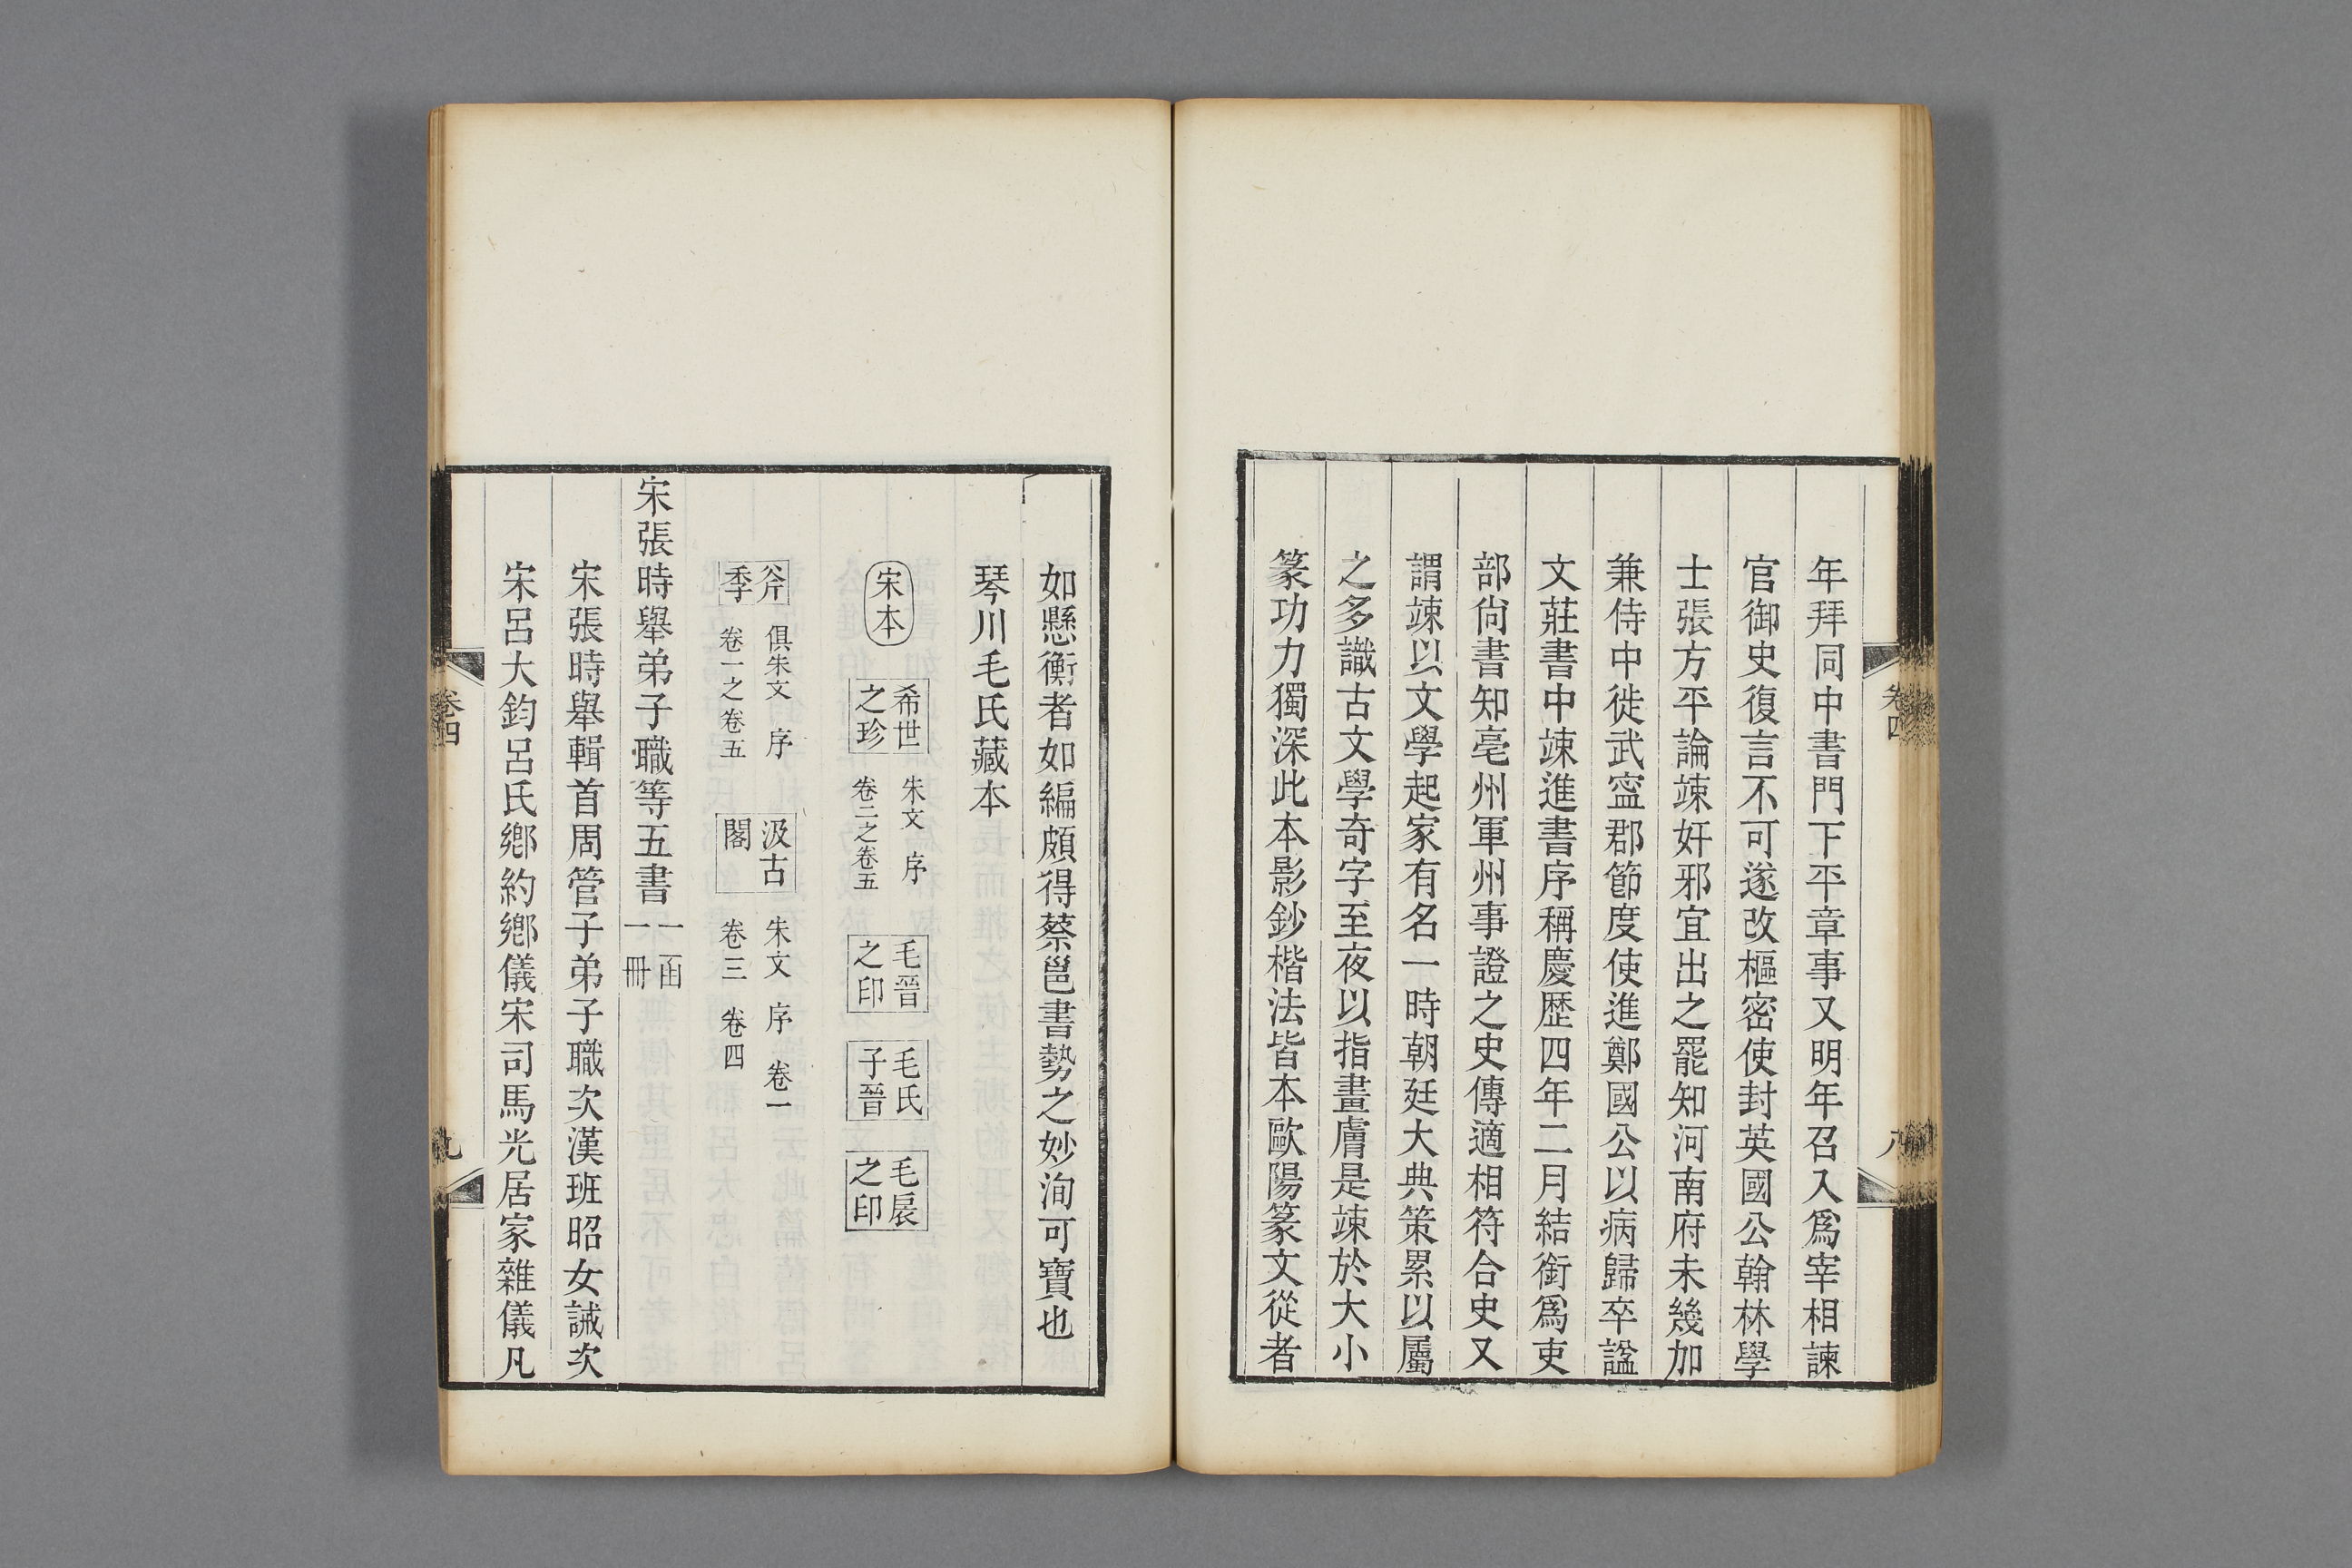 年拜同中書門下平章事又明年召入爲宰相諫
官御史復言不可遂改樞密使封英國公翰林學
士張方平論竦奸邪宜出之罷知河南府未幾加
兼侍中徙武寍郡節度使進鄭國公以病歸卒諡
文莊書中竦進書序稱慶歷四年二月結銜爲吏
部尙書知亳州軍州事證之史傳適相符合史又
謂竦以文學起家有名一時朝廷大典策累以屬
之多識古文學奇字至夜以指畫膚是竦於大小
篆功力獨深此本影鈔楷法皆本歐陽篆文從者
卷四
八
如懸衡者如編頗得蔡邕書勢之妙洵可寶也
琴川毛氏藏本
宋本
希世之珍
朱文 序
卷二之卷五
毛晉之印
毛氏子晉
毛扆之印
斧季
俱朱文 序
卷一之卷五
汲古閣
朱文 序 卷一
卷三 卷四
宋張時舉弟子職等五書
一函
一冊
宋張時舉輯首周管子弟子職次漢班昭女誡次
宋呂大鈞呂氏鄉約鄉儀宋司馬光居家雜儀凡
卷四
九